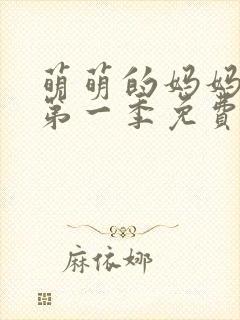 萌萌的妈妈
第一季免費
麻依娜